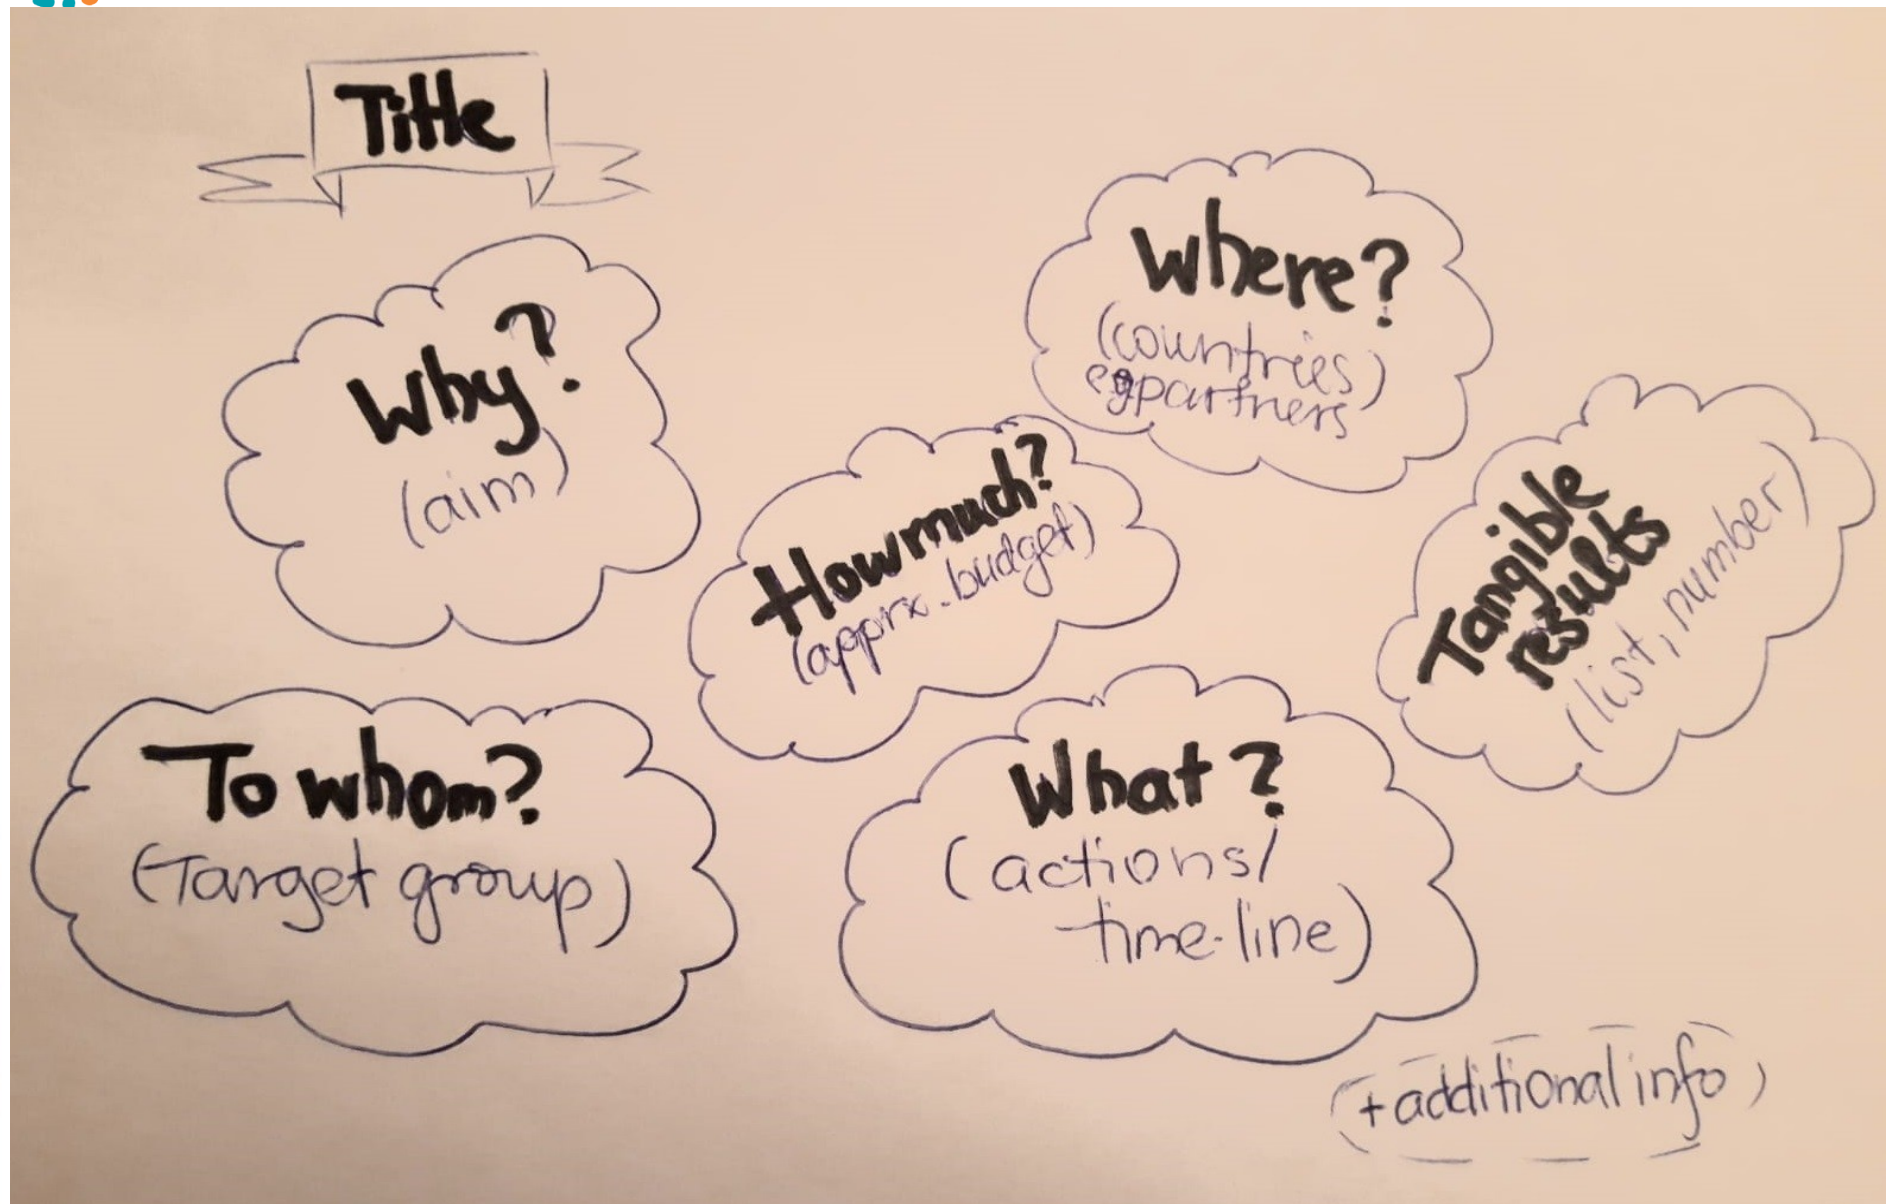 Title
Why?
(aim)
Where?
(countries)
eg partners
How much?
(apprx. budget)
Tangible
results
(list, number)
To whom?
(Target group)
What?
(actions/
time-line)
(+ additional info)